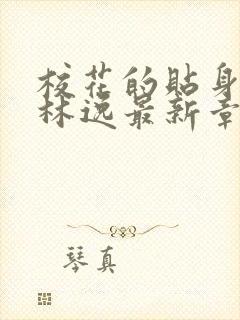 校花的贴身
林逸最新章
琴真